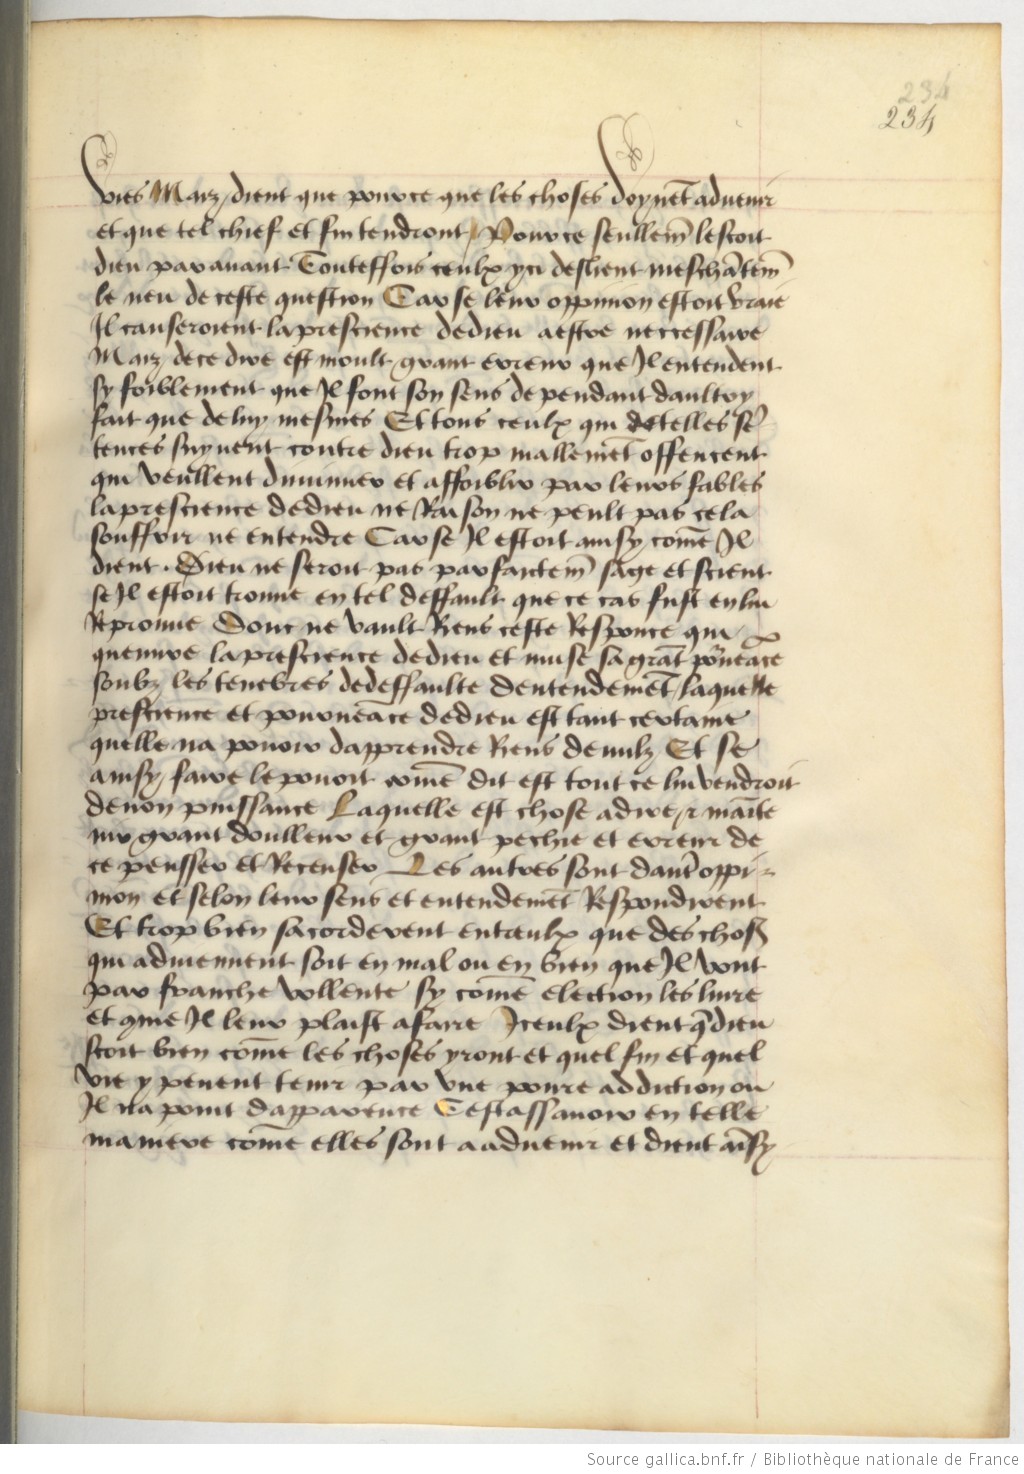 234
234
vies Maiz dient que pource que les choses doyuēt aduenir
et que tel chief et fin tendront Pource seullem̄ le scoit
dieu par auant Touteffois ceulx yci deslient meschātem̄
le neu de ceste question Car se leur oppinion estoit vraie
Il causeroient la prescience de dieu a estre neccessaire
Maiz de ce dire est moult grant erreur que Il entendent
sy foiblement que Il font son sens dependant daultry
fait que de luy mesmes Et tous ceulx qui de telles sē
tences suyuent contre dieu trop mallemēt offencent
qui veullent diminuer et affoiblir par leurs fables
la prescience de dieu ne Raison ne peult pas cela
souffrir ne entendre Car se Il estoit ainsy cōme Il
dient. Dieu ne seroit pas parfaictem̄ sage et scient
se Il estoit trouue en tel deffault que ce cas fust en lui
Reprouue Donc ne vault Riens ceste Responce qui
queuure la prescience de dieu et muse sa grāt pourueāce
soubz les tenebres de deffaulte dentendemēt laquelle
prescience et pourueāce de dieu est tant certaine
quelle na pouoir dapprendre Riens de nulz Et se
ainsy faire le pouoit cōme dit est tout ce lui vendroit
de non puissance Laquelle est chose a dire r maīte
nir grant doulleur et grant pechie et erreur de
ce pensser et Recenser Les autres sont dautē oppi-
nion et selon leur sens et entendemēt Respondirent
Et trop bien sacorderent entreulx que des choses
qui aduiennent soit en mal ou en bien que Il vont
par franche vollente sy cōme election les liure
et que Il leur plaist a faire Iceulx dient q̄ dieu
scoit bien cōme les choses yront et quel fin et quel
vie y peuent tenir par vne poure addiction ou
Il na point dapparence Cestassauoir en telle
maniere cōme elles sont a aduenir et dient aīsy
Source gallica.bnf.fr / Bibliothèque nationale de France